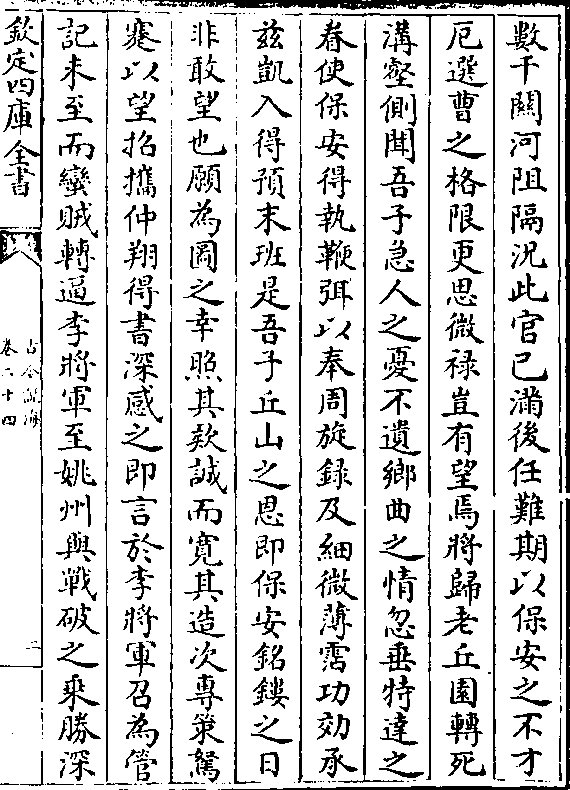 數千關河阻隔況此官已滿後任難期以保安之不才
厄選曹之格限更思微禄豈有望焉將歸老丘園轉死
溝壑側聞吾子急人之憂不遺鄉曲之情忽垂特達之
眷使保安得執鞭弭以奉周旋録及細微薄霑功効承
兹凱入得預末班是吾子丘山之恩即保安銘鏤之日
非敢望也願為圖之幸照其欵誠而寛其造次專䇿駑
蹇以望招攜仲翔得書深感之即言於李將軍召為管
記未至而蠻賊轉逼李將軍至姚州與戰破之乘勝深
欽定四庫全書
古今說海
卷二十四
二